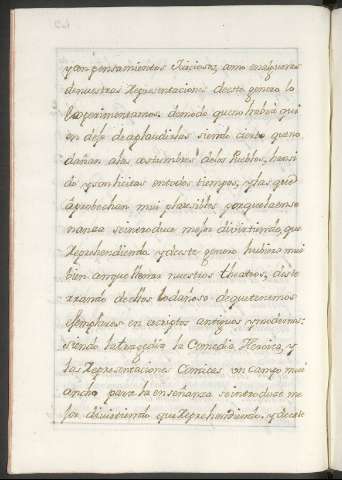 y con pensamientos Juiciosos, como en algunas
de nuestras Representaciones de este genero lo
Experimentamos. de modo que no habrá qui
en deje de aplaudirlas siendo cierto que no
dañan a las costumbres delos Pueblos, han si
do y son licitas en todos tiempos, y las que
aprobechan mui plausibles porque la ense
nanza se introduce mejor divirtiendo, que
Reprehendiendo y de este genero hubiera mui
bien con que llenar nuestros theatros, deste
rrando de ellos lo dañoso de que tenemos
exemplares en escriptos antiguos y modernos:
siendo la tragedia la Comedia Heroica, y
las Representaciones Comicas un campo mui
ancho para la enseñanza se introduce me
jor divirtiendo que Reprehendiendo. y de este